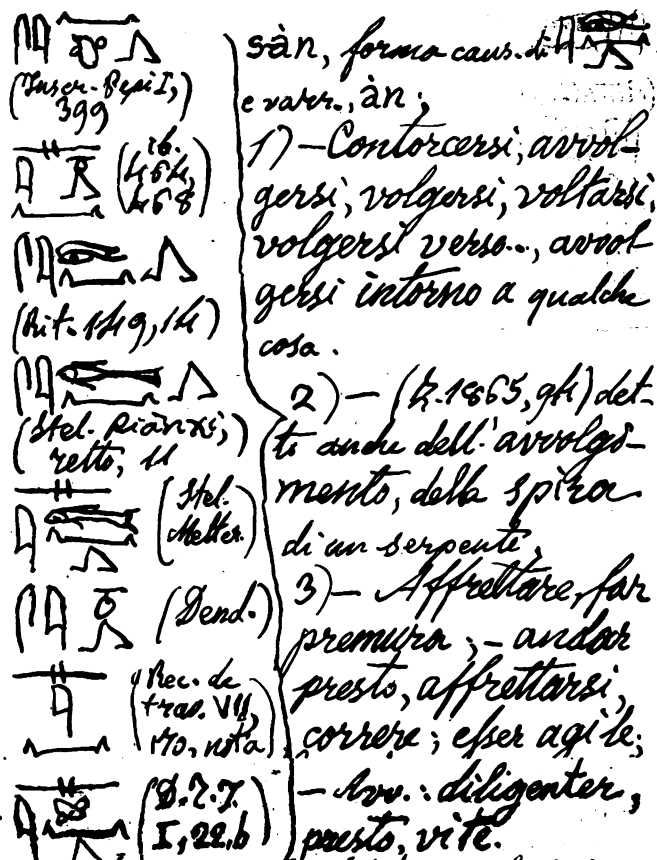 (Inscr. Pepi I,
399
(ib.
464,
468)
(Rit. 149, 14)
(Stel. Piānχi,
retto, 11
(Stel.
Metter.)
(Dend.)
(Rec. de
trav. VII,
170, nota)
(D.T.I.
I, 22, b)
sàn, forma caus. di
e varr., àn;
1) – Contorcersi, avvol-
gersi, volgersi, voltarsi,
volgersi verso..., avvol-
gersi intorno a qualche
cosa.
2) – (Z. 1865, 94) det-
to anche dell'avvolgi-
mento, della spira
di un serpente,
3) – Affrettare, far
premura; – andar
presto, affrettarsi,
correre; esser agile;
– Avv.: diligenter,
presto, vite.